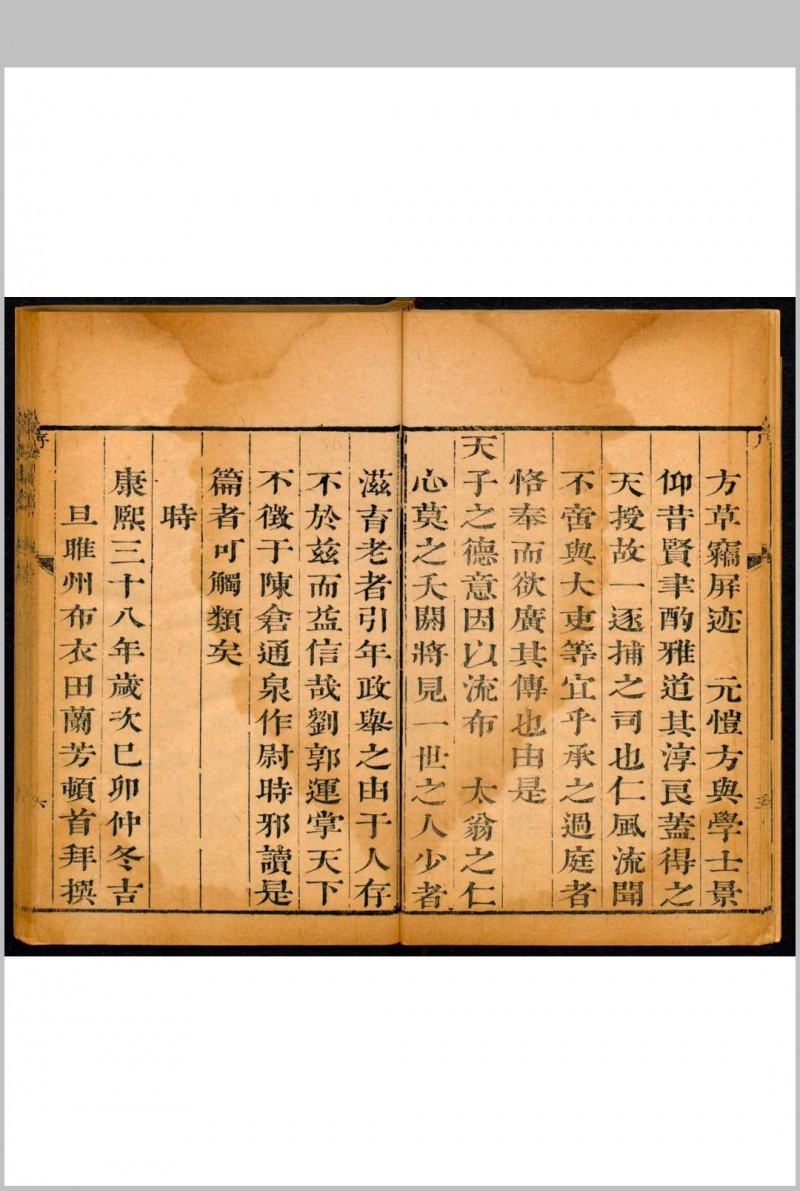 方草竊屏迹　元愷方與學士景
仰昔賢聿酌雅道其淳良蓋得之
天授故一逐捕之司也仁風流聞
不啻與大吏等宜乎承之過庭者
恪奉而欲廣其傳也由是
天子之德意因以流布　太翁之仁
心莫之夭閼將見一世之人少者
滋育老者引年政舉之由于人存
不於茲而益信哉劉郭運掌天下
不徵于陳倉通泉作尉時邪讀是
篇者可觸類矣
時
康熙三十八年歲次已卯仲冬吉
旦睢州布衣田蘭芳頓首拜撰
序
六